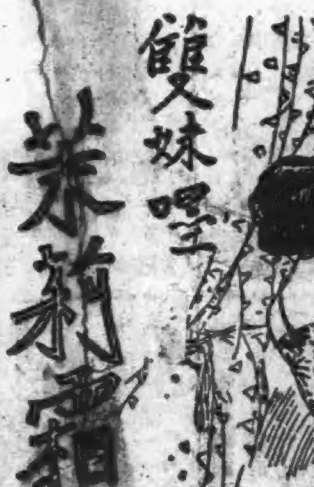 雙妹嚜
茉莉霜